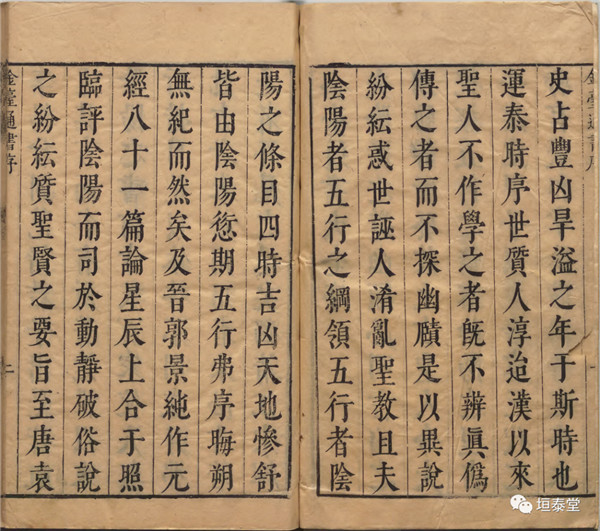 史占豐凶旱溢之年于斯時也
運泰時序世質人淳迨漢以來
聖人不作學之者旣不辨眞僞
傳之者而不探幽賾是以異說
紛紜惑世誣人淆亂聖教且夫
陰陽者五行之綱領五行者陰
陽之條目四時吉凶天地慘舒
皆由陰陽愆期五行弗序晦朔
無紀而然矣及晉郭景純作元
經八十一篇論星辰上合于照
臨評陰陽而司於動靜破俗說
之紛紜質聖賢之要旨至唐袁
通書序
二
垣泰堂